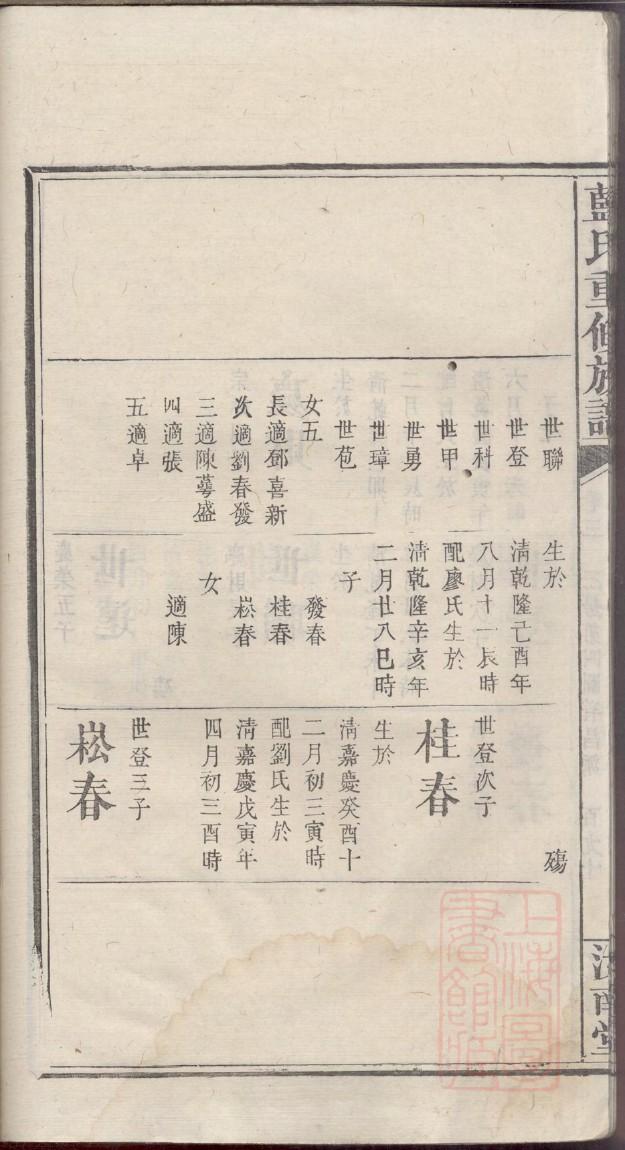 藍氏重修族譜
世聯
世登
世科
世甲
世勇
世璋
世苞
女五
長適鄧喜新
次適劉春發
三適陳萼盛
四適張
五適卓
生於
清乾隆己酉年
八月十一辰時
配廖氏生於
清乾隆辛亥年
二月廿八巳時
子
發春
桂春
崧春
女
適陳
殤
世登次子
桂春
生於
清嘉慶癸酉十
二月初三寅時
配劉氏生於
清嘉慶戊寅年
四月初三酉時
世登三子
崧春
汝南堂
上海圖
書館藏